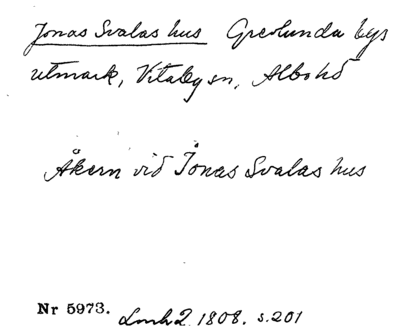 Jonas Svalas hus Grevlunda bys
utmark, Vitaby sn, Albo hd
Åkern vid Jonas Svalas hus
Nr 5973. 1808. s. 201